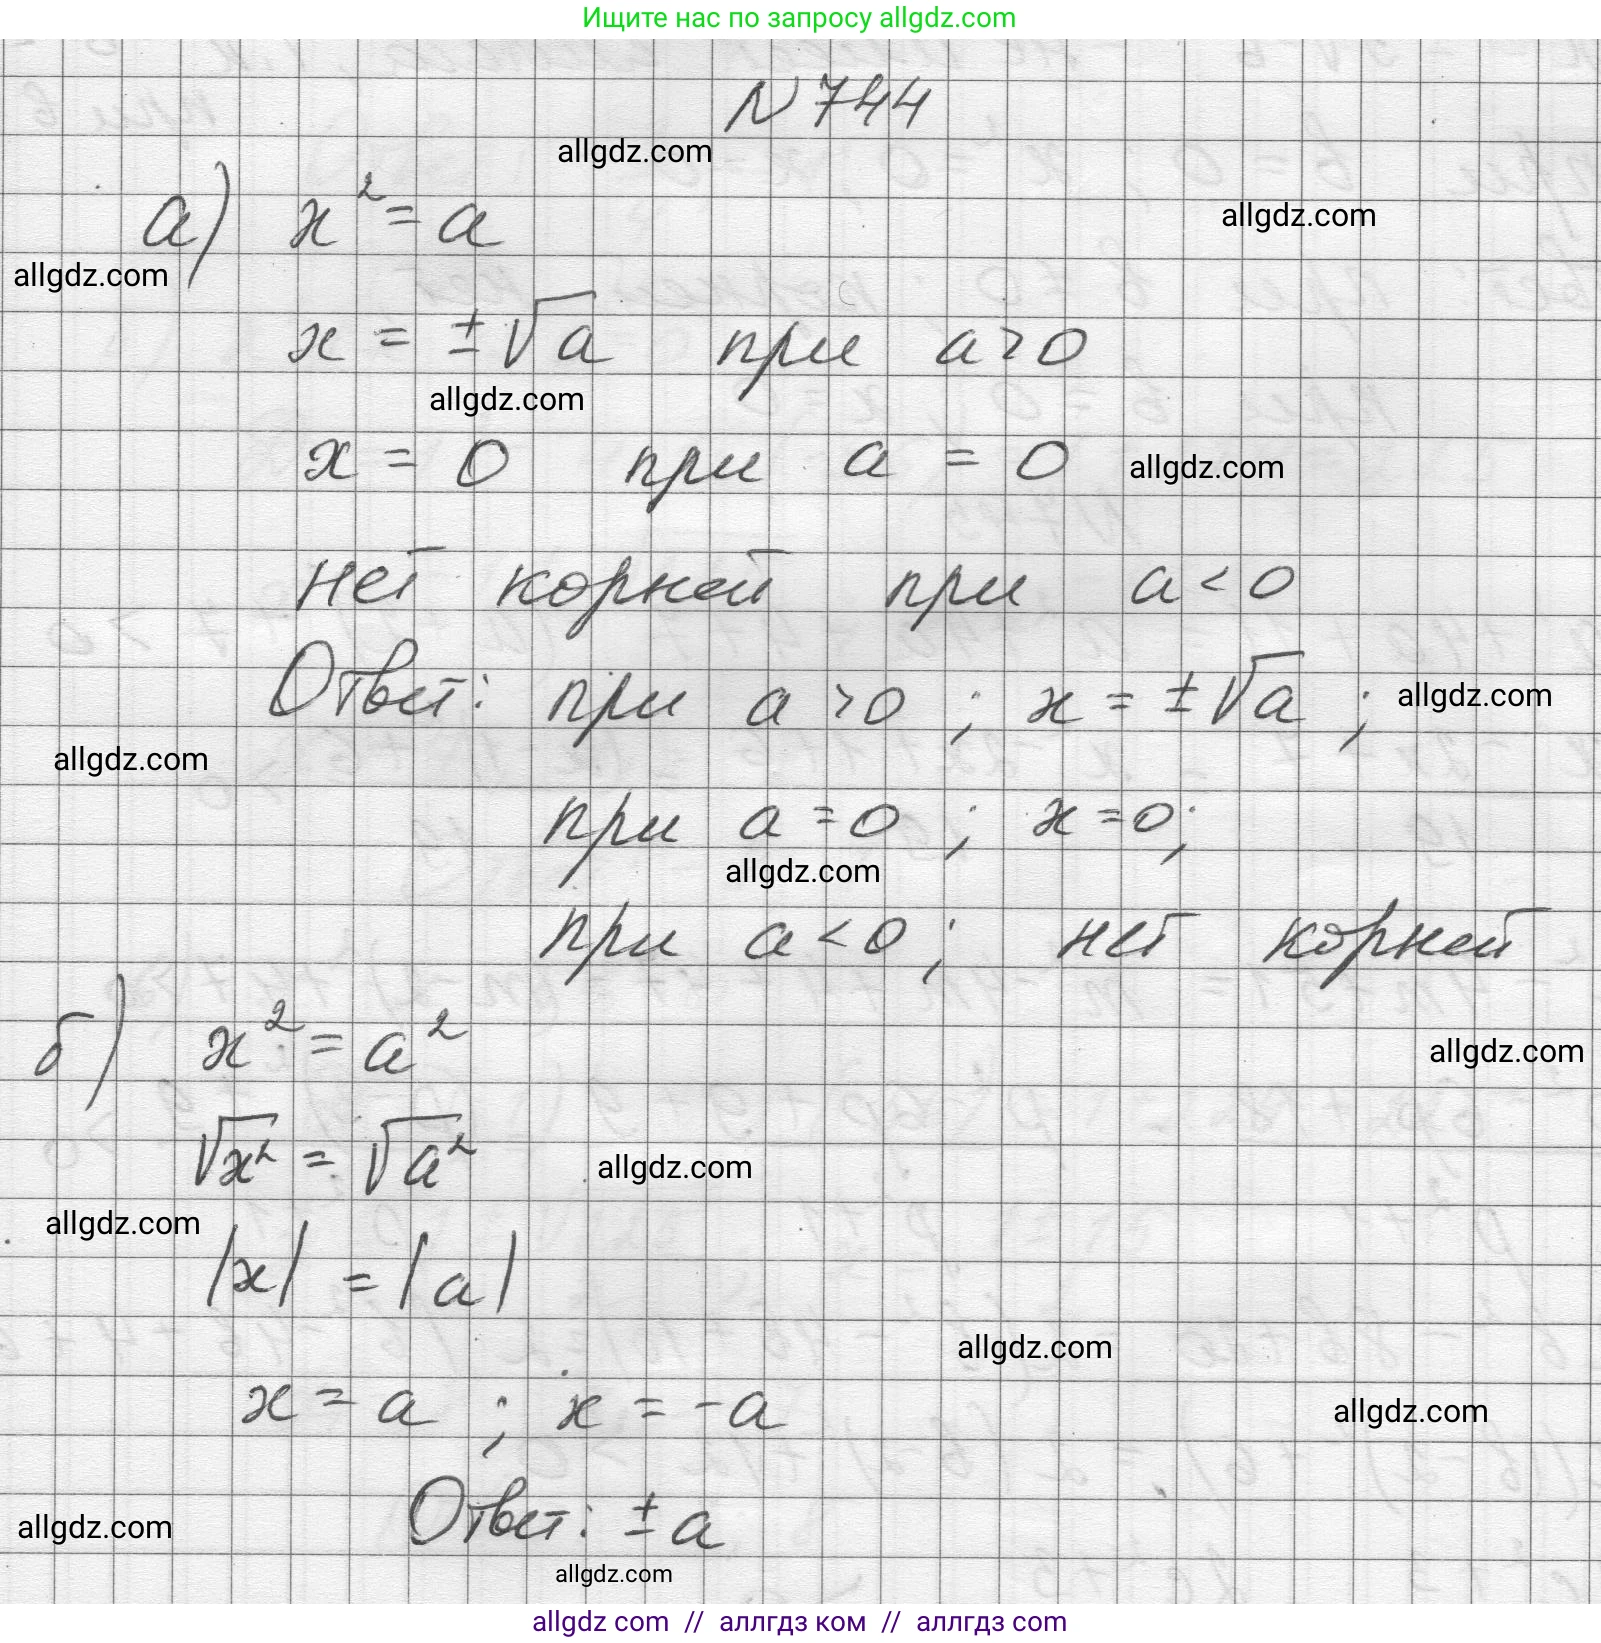 Ищите нас по запросу allgdz.com
N 744
allgdz.com
а) x² = a
allgdz.com
allgdz.com
x = ±√a при a > 0
allgdz.com
x = 0 при a = 0
allgdz.com
нет корней при a < 0
Ответ: при a > 0 ; x = ±√a ;
allgdz.com
allgdz.com
при a = 0 ; x = 0;
allgdz.com
при a < 0 ; нет корней
б) x² = a²
allgdz.com
√x² = √a²
allgdz.com
allgdz.com
|x| = |a|
allgdz.com
x = a ; x = -a
allgdz.com
Ответ: ± a
allgdz.com
allgdz.com
allgdz com // аллгдз ком // аллгдз com